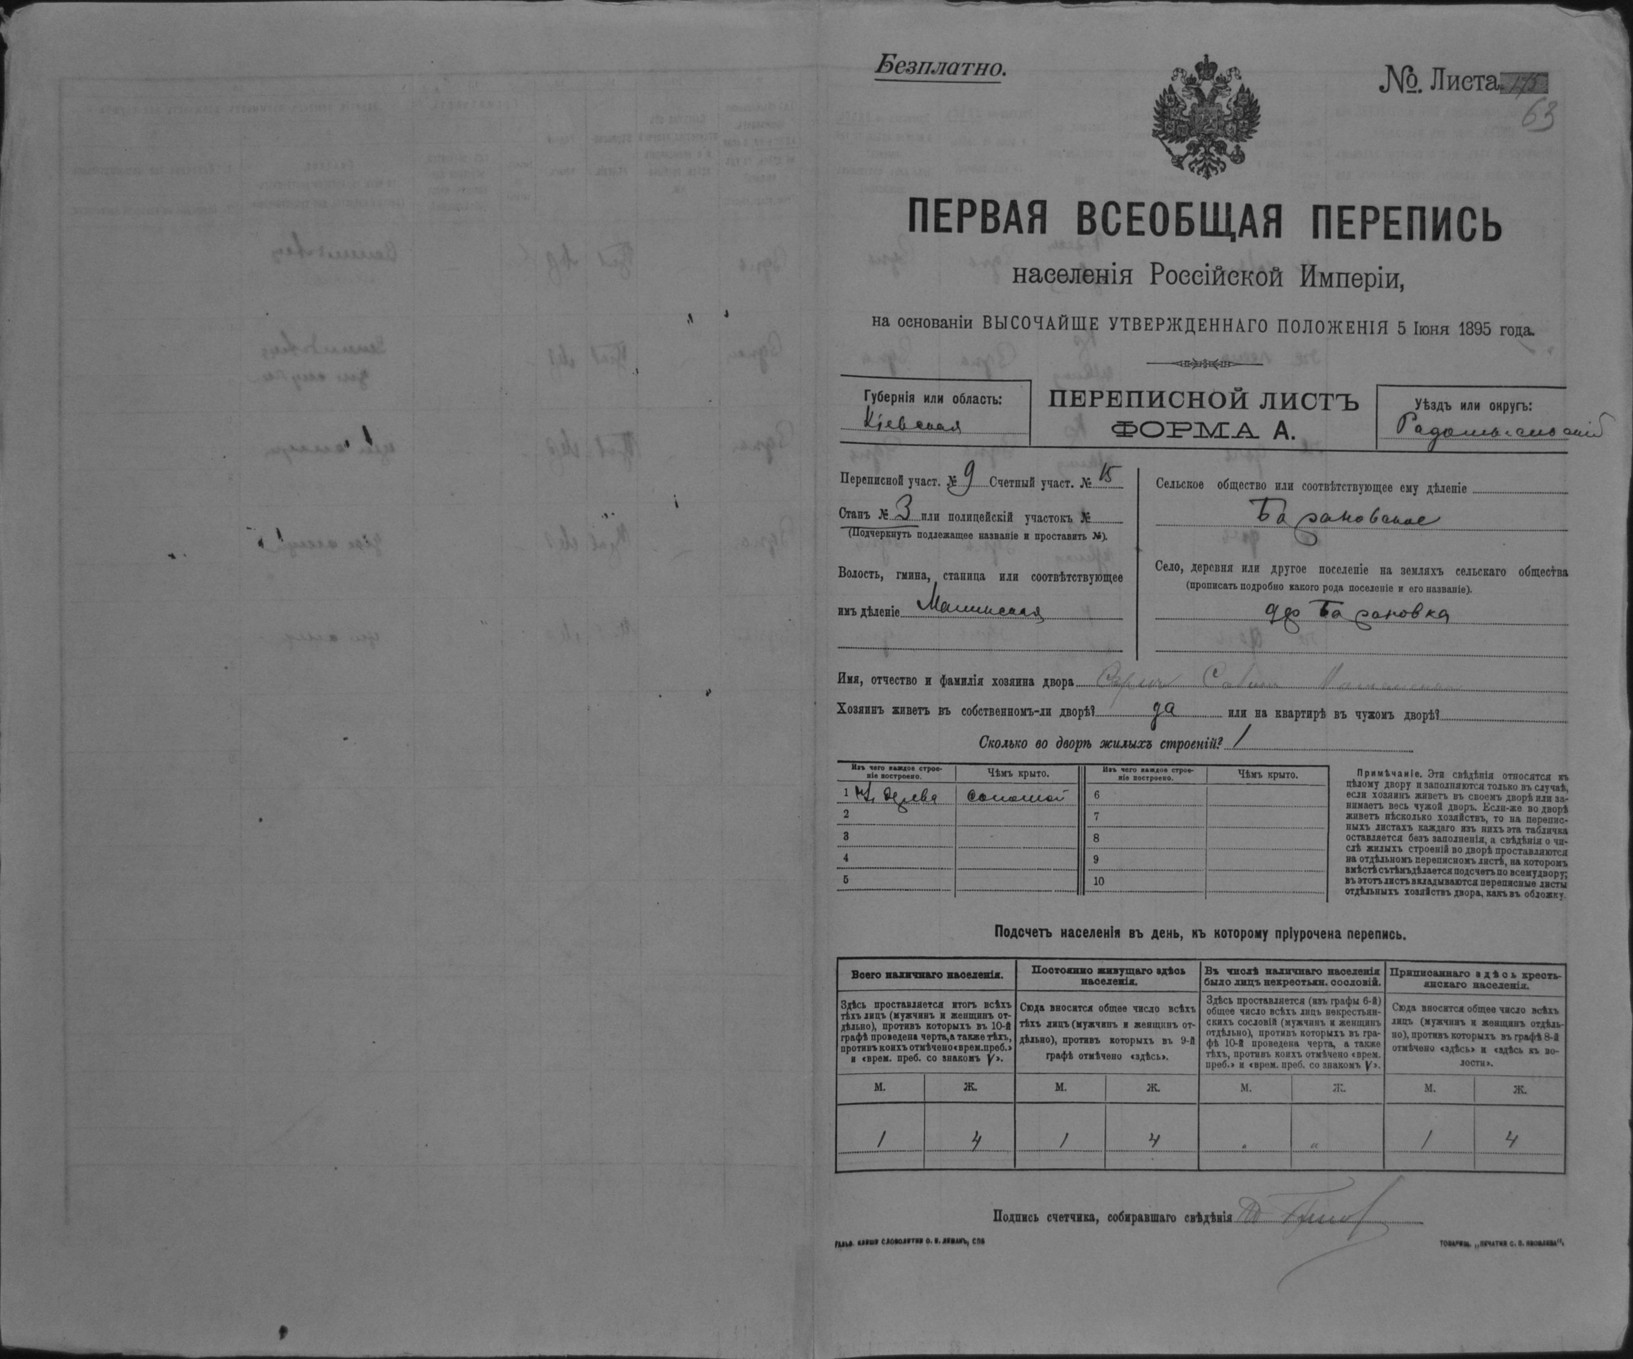 Безплатно.
№. Листа
63
ПЕРВАЯ ВСЕОБЩАЯ ПЕРЕПИСЬ
населенія Россійской Имперіи,
на основаніи ВЫСОЧАЙШЕ УТВЕРЖДЕННАГО ПОЛОЖЕНІЯ 5 Іюня 1895 года.
Губернія или область:
Кіевская
ПЕРЕПИСНОЙ ЛИСТЪ
ФОРМА А.
Уѣздъ или округъ:
Радомысльскій
Переписной участ. № 9 Счетный участ. № 15
Станъ № 3 или полицейскій участокъ №
(Подчеркнуть подлежащее названіе и проставить №).
Волость, гмина, станица или соотвѣтствующее
имъ дѣленіе Малинская
Сельское общество или соотвѣтствующее ему дѣленіе
Барановское
Село, деревня или другое поселеніе на земляхъ сельскаго общества
(прописать подробно какого рода поселеніе и его названіе).
дер Барановка
Имя, отчество и фамилія хозяина двора
Хозяинъ живетъ въ собственномъ-ли дворѣ? да или на квартирѣ въ чужомъ дворѣ?
Сколько во дворѣ жилыхъ строеній? 1
Изъ чего каждое строе-
ніе построено.
Чѣмъ крыто.
Изъ чего каждое строе-
ніе построено.
Чѣмъ крыто.
1 Изъ дерева соломой 6
2 7
3 8
4 9
5 10
Примѣчаніе. Эти свѣдѣнія относятся къ
цѣлому двору и заполняются только въ случаѣ,
если хозяинъ живетъ въ своемъ дворѣ или за-
нимаетъ весь чужой дворъ. Если-же во дворѣ
живетъ нѣсколько хозяйствъ, то на перепис-
ныхъ листахъ каждаго изъ нихъ эта табличка
оставляется безъ заполненія, а свѣдѣнія о чи-
слѣ жилыхъ строеній во дворѣ проставляются
на отдѣльномъ переписномъ листѣ, на которомъ
вмѣстѣ съ тѣмъ дѣлается подсчетъ по всему двору;
въ этотъ листъ вкладываются переписные листы
отдѣльныхъ хозяйствъ двора, какъ въ обложку.
Подсчетъ населенія въ день, къ которому пріурочена перепись.
Всего наличнаго населенія.
Здѣсь проставляется итогъ всѣхъ
тѣхъ лицъ (мужчинъ и женщинъ от-
дѣльно), противъ которыхъ въ 10-й
графѣ проведена черта, а также тѣхъ,
противъ коихъ отмѣчено «врем. преб.»
и «врем. преб. со знакомъ V».
Постоянно живущаго здѣсь
населенія.
Сюда вносится общее число всѣхъ
тѣхъ лицъ (мужчинъ и женщинъ от-
дѣльно), противъ которыхъ въ 9-й
графѣ отмѣчено «здѣсь».
Въ числѣ наличнаго населенія
было лицъ некрестьян. сословій.
Здѣсь проставляется (изъ графы 6-й)
общее число всѣхъ лицъ некрестьян-
скихъ сословій (мужчинъ и женщинъ
отдѣльно), противъ которыхъ въ гра-
фѣ 10-й проведена черта, а также
тѣхъ, противъ коихъ отмѣчено «врем.
преб.» и «врем. преб. со знакомъ V».
Приписаннаго здѣсь кресть-
янскаго населенія.
Сюда вносится общее число всѣхъ
лицъ (мужчинъ и женщинъ отдѣль-
но), противъ которыхъ въ графѣ 8-й
отмѣчено «здѣсь» и «здѣсь въ во-
лости».
М. Ж. М. Ж. М. Ж. М. Ж.
1 4 1 4 „ „ 1 4
Подпись счетчика, собиравшаго свѣдѣнія
ГАЛЬВ. КЛИШЕ СЛОВОЛИТНИ О. И. ЛЕМАНЪ, СПБ
ТОВАРИЩ. „ПЕЧАТНЯ С. П. ЯКОВЛЕВА".